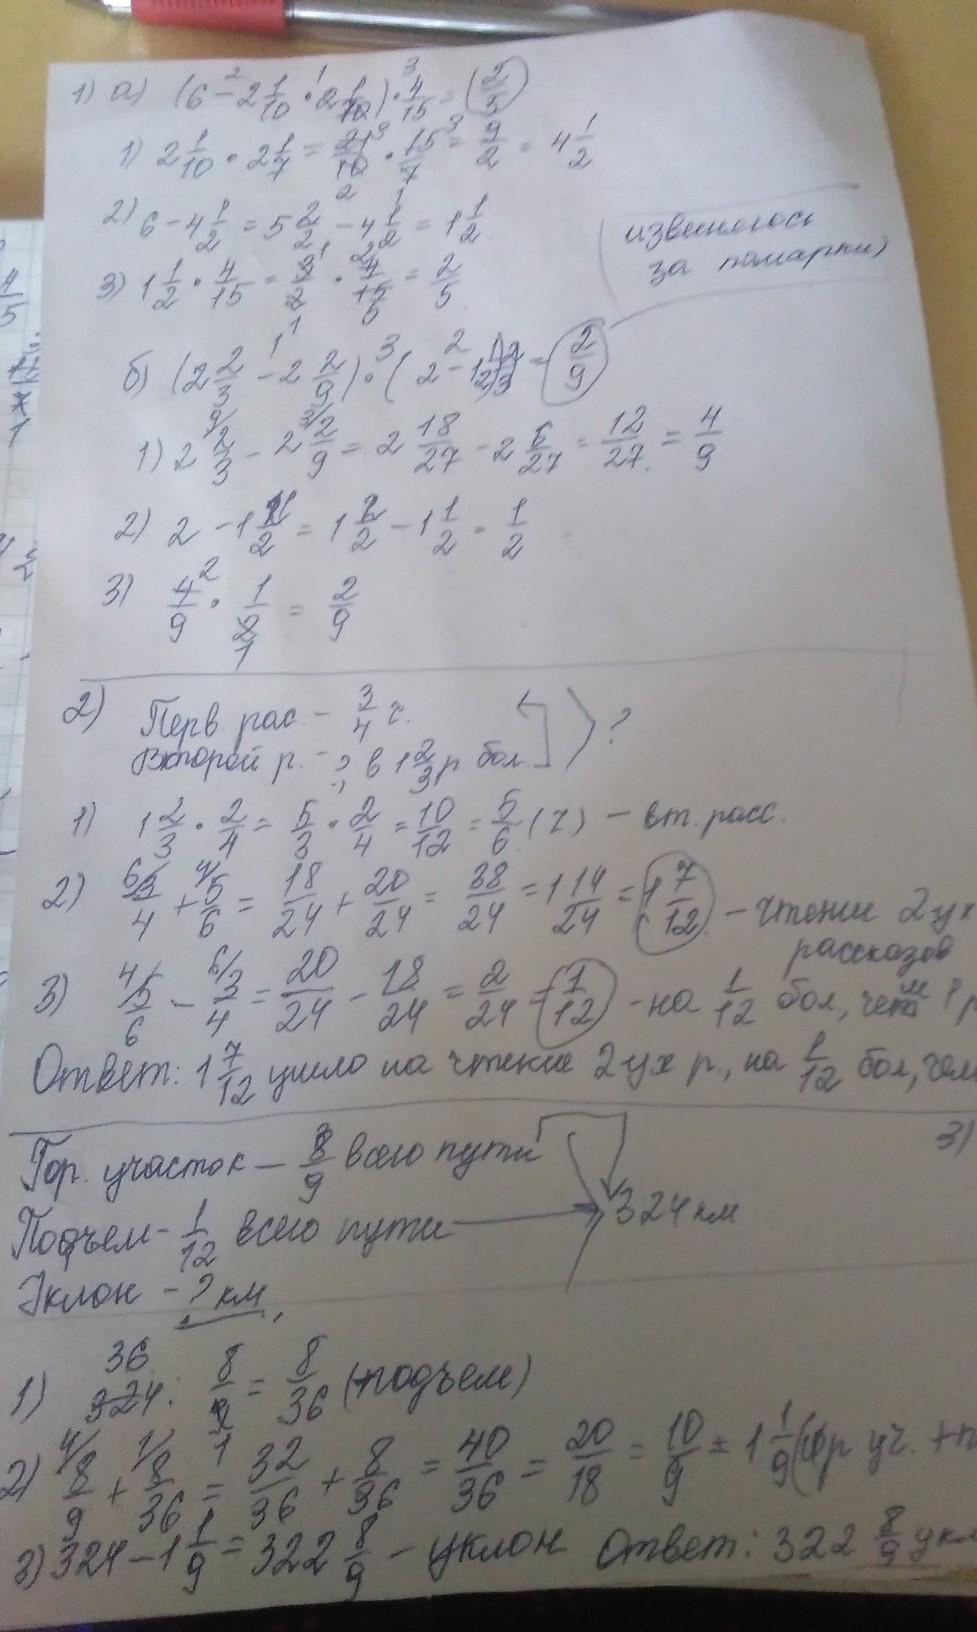 1) а) (6 − 2 1/10 · 2 1/7) · 4/15 = 2/5
1) 2 1/10 · 2 1/7 = 21/10 · 15/7 = 9/2 = 4 1/2
2) 6 − 4 1/2 = 5 2/2 − 4 1/2 = 1 1/2
извеняюсь
за помарки)
3) 1 1/2 · 4/15 = 3/2 · 4/15 = 2/5
б) (2 2/3 − 2 2/9) · (2 − 1 1/2) = 2/9
1) 2 2/3 − 2 2/9 = 2 18/27 − 2 6/27 = 12/27 = 4/9
2) 2 − 1 1/2 = 1 2/2 − 1 1/2 = 1/2
3) 4/9 · 1/2 = 2/9
2) Перв рас. − 3/4 ч.
Второй р. − ? в 1 2/3 р бол. ?
1) 1 2/3 · 2/4 = 5/3 · 2/4 = 10/12 = 5/6 (ч.) − вт. расс.
2) 3/4 + 5/6 = 18/24 + 20/24 = 38/24 = 1 14/24 = 1 7/12 − чтение 2ух
рассказов
3) 5/6 − 3/4 = 20/24 − 18/24 = 2/24 = 1/12 - на 1/12 бол, чем 1 р
Ответ: 1 7/12 ушло на чтение 2ух р., на 1/12 бол, чем
3)
Гор. участок − 8/9 всего пути
Подъем - 1/12 всего пути 324 км
Уклон − ? км
1) 324 : 8/9 = 8/36 (подъем)
2) 8/9 + 8/36 = 32/36 + 8/36 = 40/36 = 20/18 = 10/9 = 1 1/9 (гор уч. + п
3) 324 − 1 1/9 = 322 8/9 − уклон Ответ: 322 8/9 укл